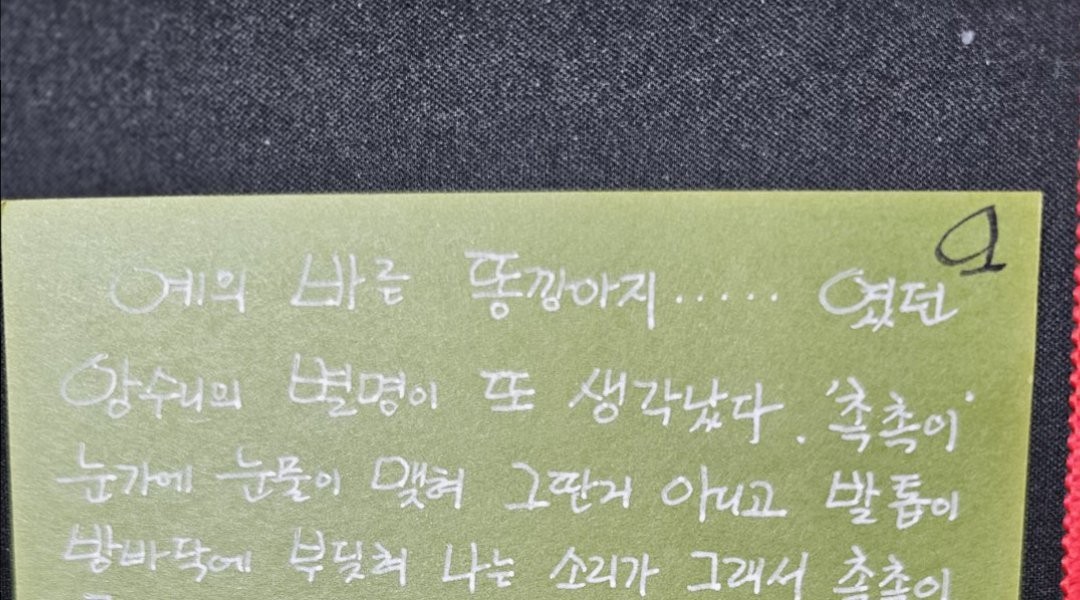 오
예의 바른 똥깡아지..... 였던
앙수리의 별명이 또 생각났다. '촉촉이'
눈가에 눈물이 맺혀 그딴거 아니고 발톱이
방바닥에 부딪혀 나는 소리가 그래서 촉촉이